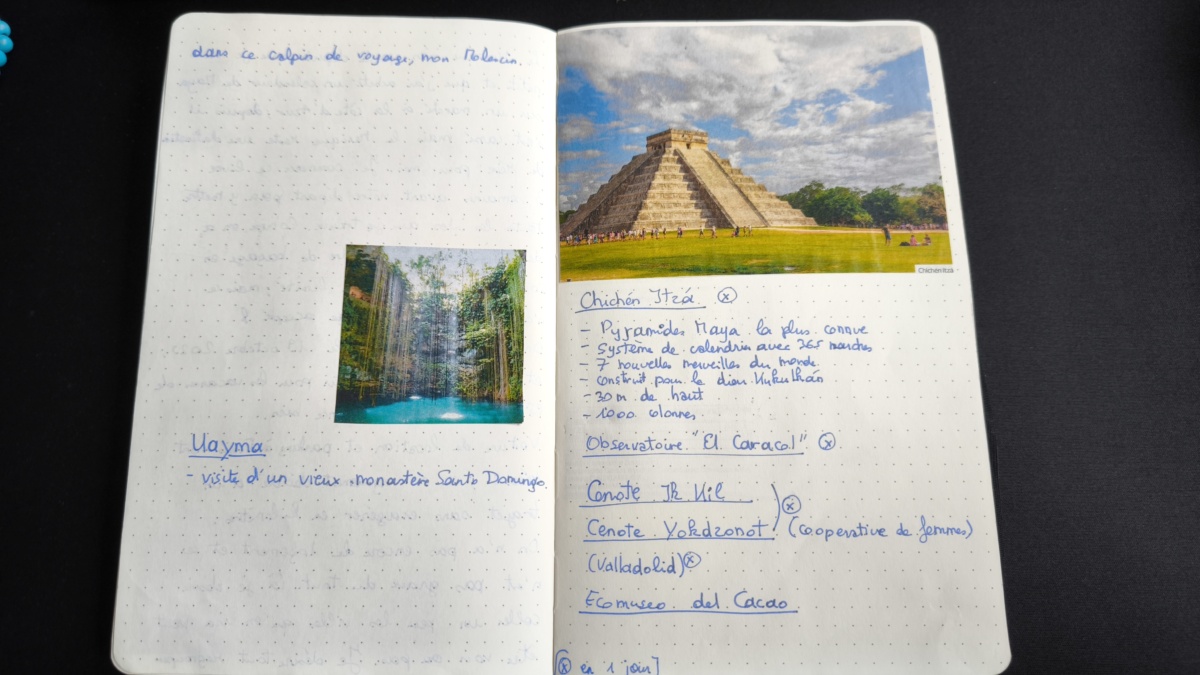 dans ce calpin de voyage, mon Moleskin.
Uayma
- visite d'un vieux monastère Santo Domingo.
Chichén Itzá
Chichén Itzá ⓧ
- Pyramides Maya la plus connue
- système de calendrier avec 365 marches
- 7 nouvelles merveilles du monde
- construit pour le dieu Kukulkán
- 30 m de haut
- 1000 colonnes
Observatoire "El Caracol" ⓧ
Cenote Ik Kil
Cenote Yokdzonot ⓧ (cooperative de femmes)
(Valladolid) ⓧ
Ecomuseo del Cacao
[ⓧ en 1 jour]